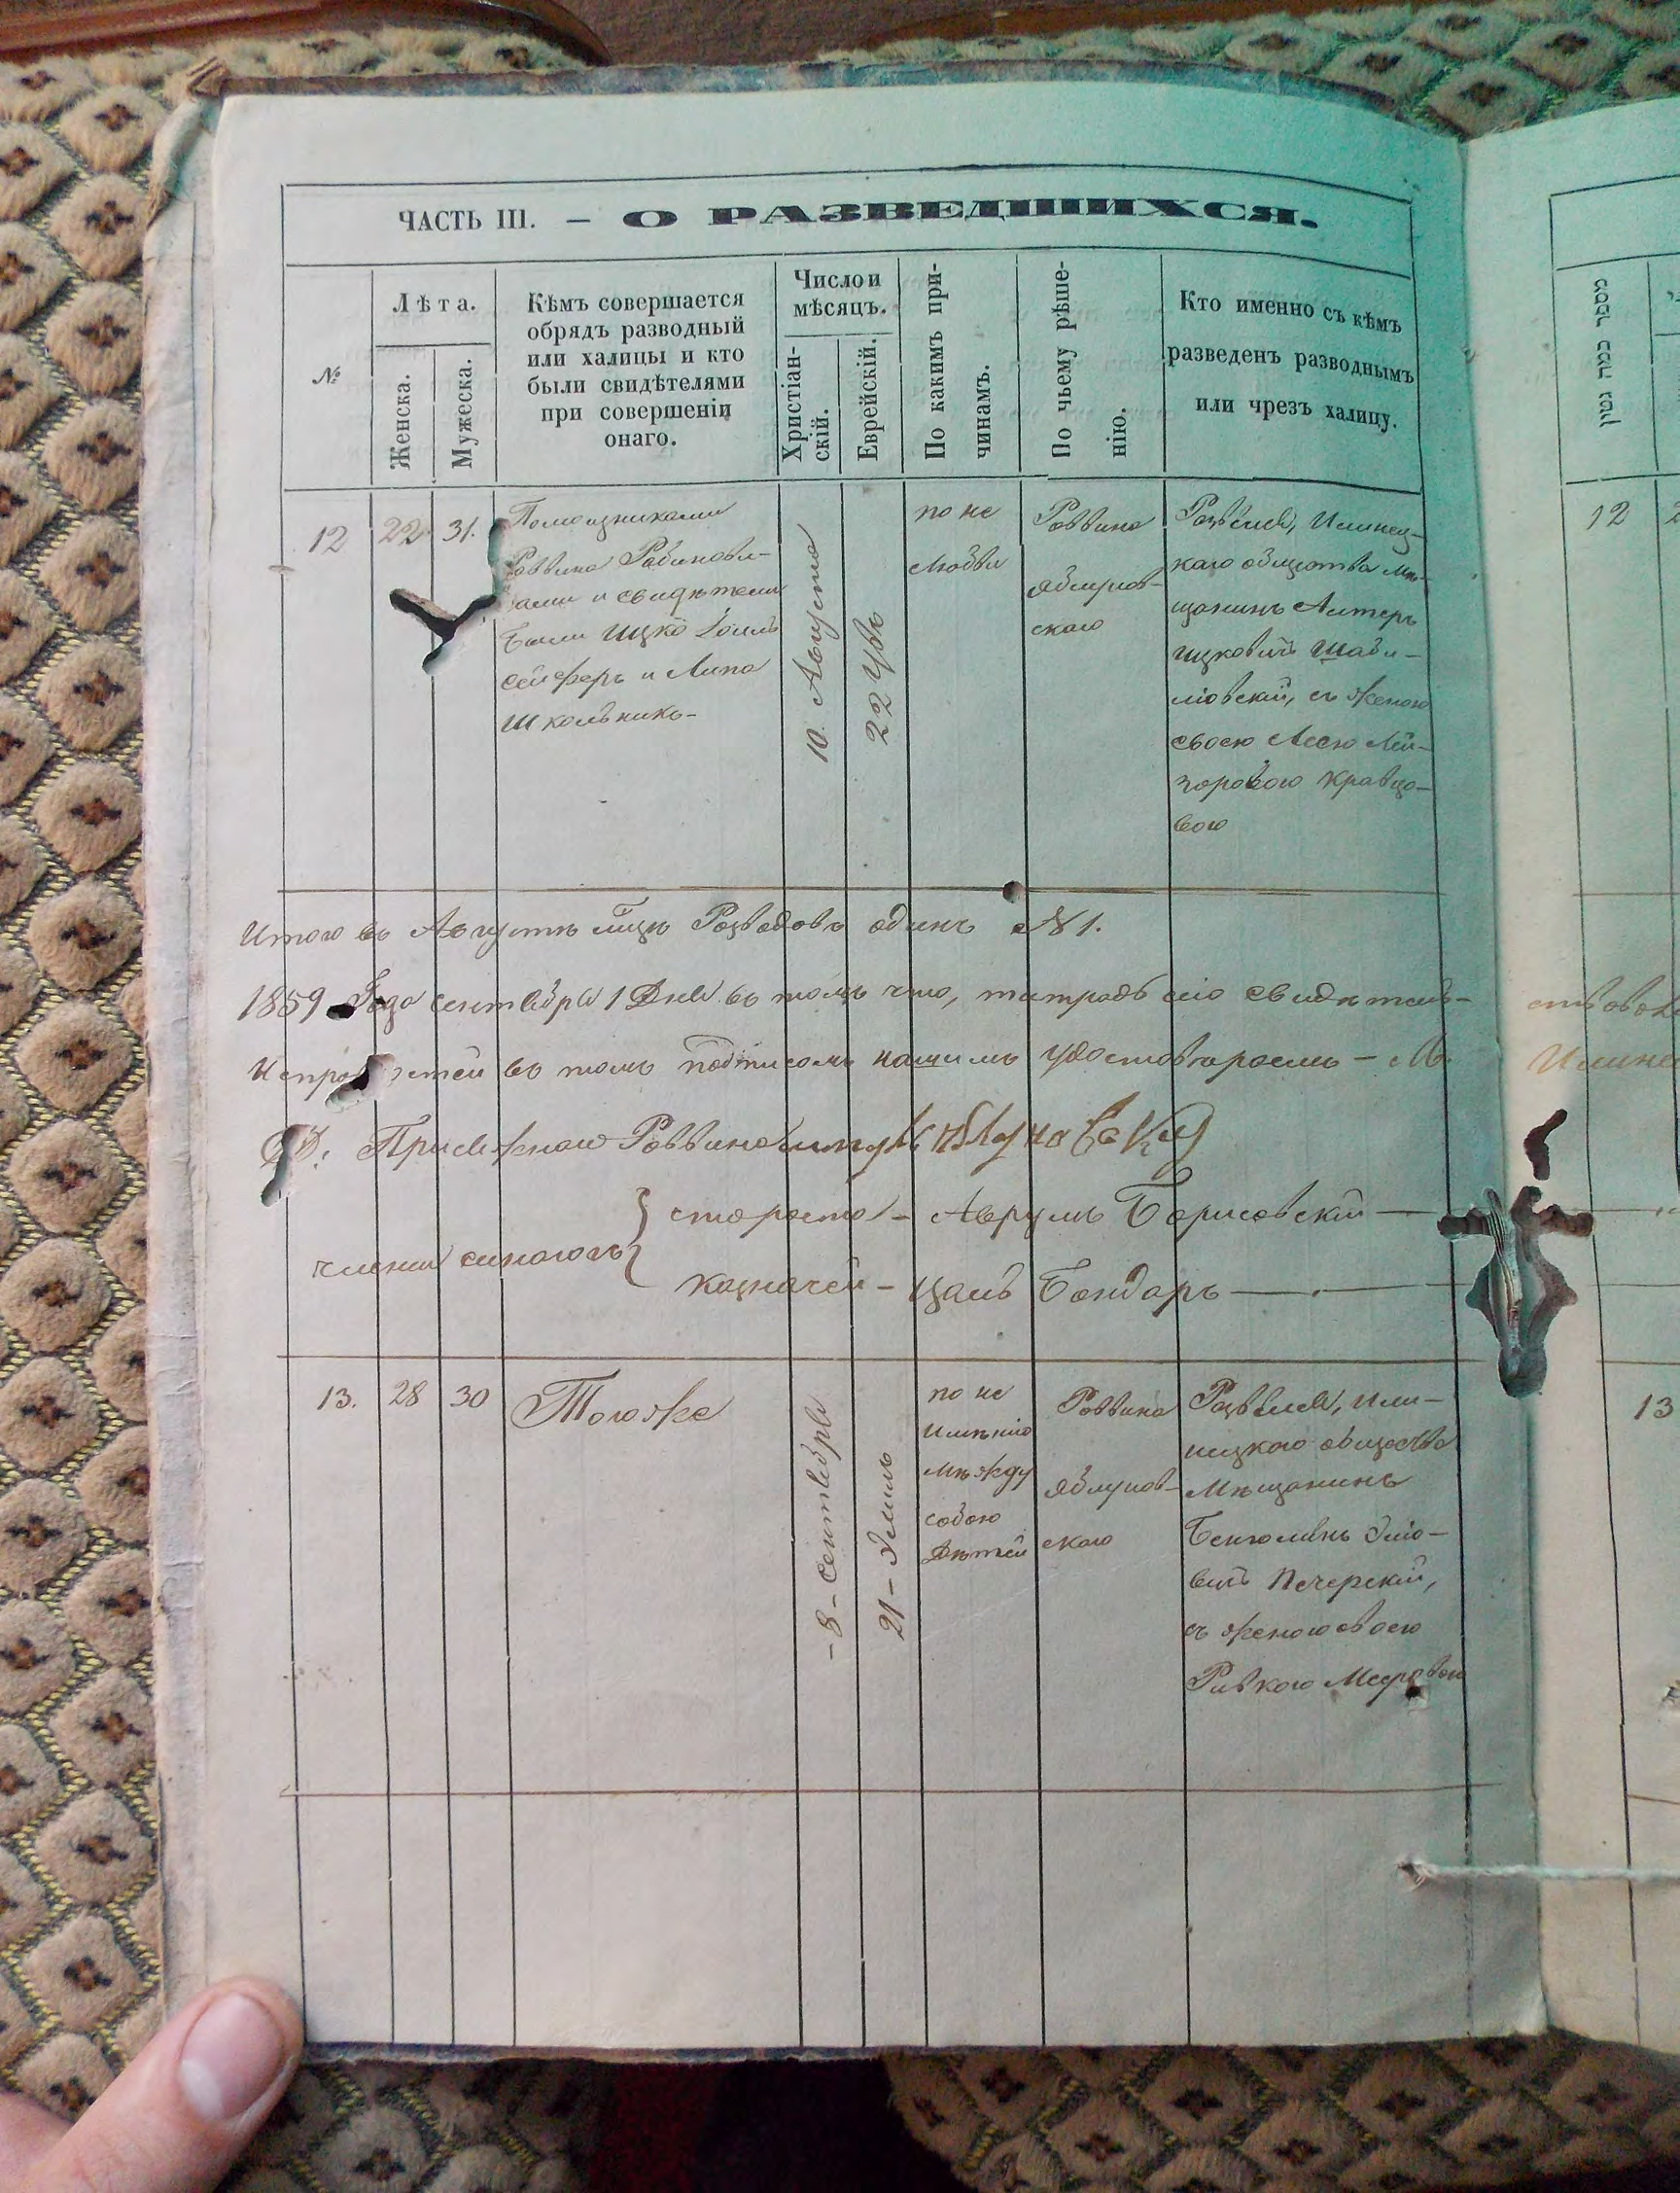 ЧАСТЬ III. – О РАЗВЕДШИХСЯ.
№
Лѣта.
Женска.
Мужеска.
Кѣмъ совершается
обрядъ разводный
или халицы и кто
были свидѣтелями
при совершеніи
онаго.
Число и
мѣсяцъ.
Христіан-
скій.
Еврейскій.
По какимъ при-
чинамъ.
По чьему рѣше-
нію.
Кто именно съ кѣмъ
разведенъ разводнымъ
или чрезъ халицу.
12
22
31.
Помощниками
Раввина Рабинови-
и свидѣтели
были Ицко
сейферъ и Липа
Школьникъ-
10. Августа
22 Увъ
по не
любви
Раввина
Яблунов-
скаго
Развелся, Илинец-
каго общества мѣ-
щанинъ Алтеръ
Ицковичъ
съ женою
своею Лей-
зоровою Кравцо-
вою
Итого въ Августѣ мцѣ Разводовъ одинъ №1.
1859 Года сентября 1 Дня въ томъ что, тетрадь сію свидѣтель-
въ томъ подписомъ нашимъ удостовѣряемъ – М.
Д: Присяжнаго Раввина Яблуновскій
члены синагогъ
староста – Аврумъ Борисовскій
казначей – Бондаръ
13.
28
30
Тогоже
– 8 – сентября
21 – Элиль
по не
имѣнію
между
собою
дѣтей
Раввина
Яблунов-
скаго
Развелся, Или-
нецкаго общества
мѣщанинъ
вичъ Печерскій,
съ женою своею
Ривкою Мееровою
מספר כמה גטין
12
Илинец
13